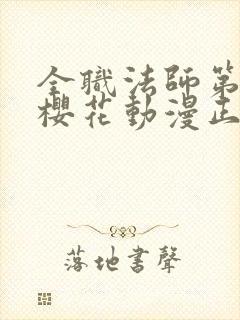 全職法師第
櫻花動漫正
落地書聲